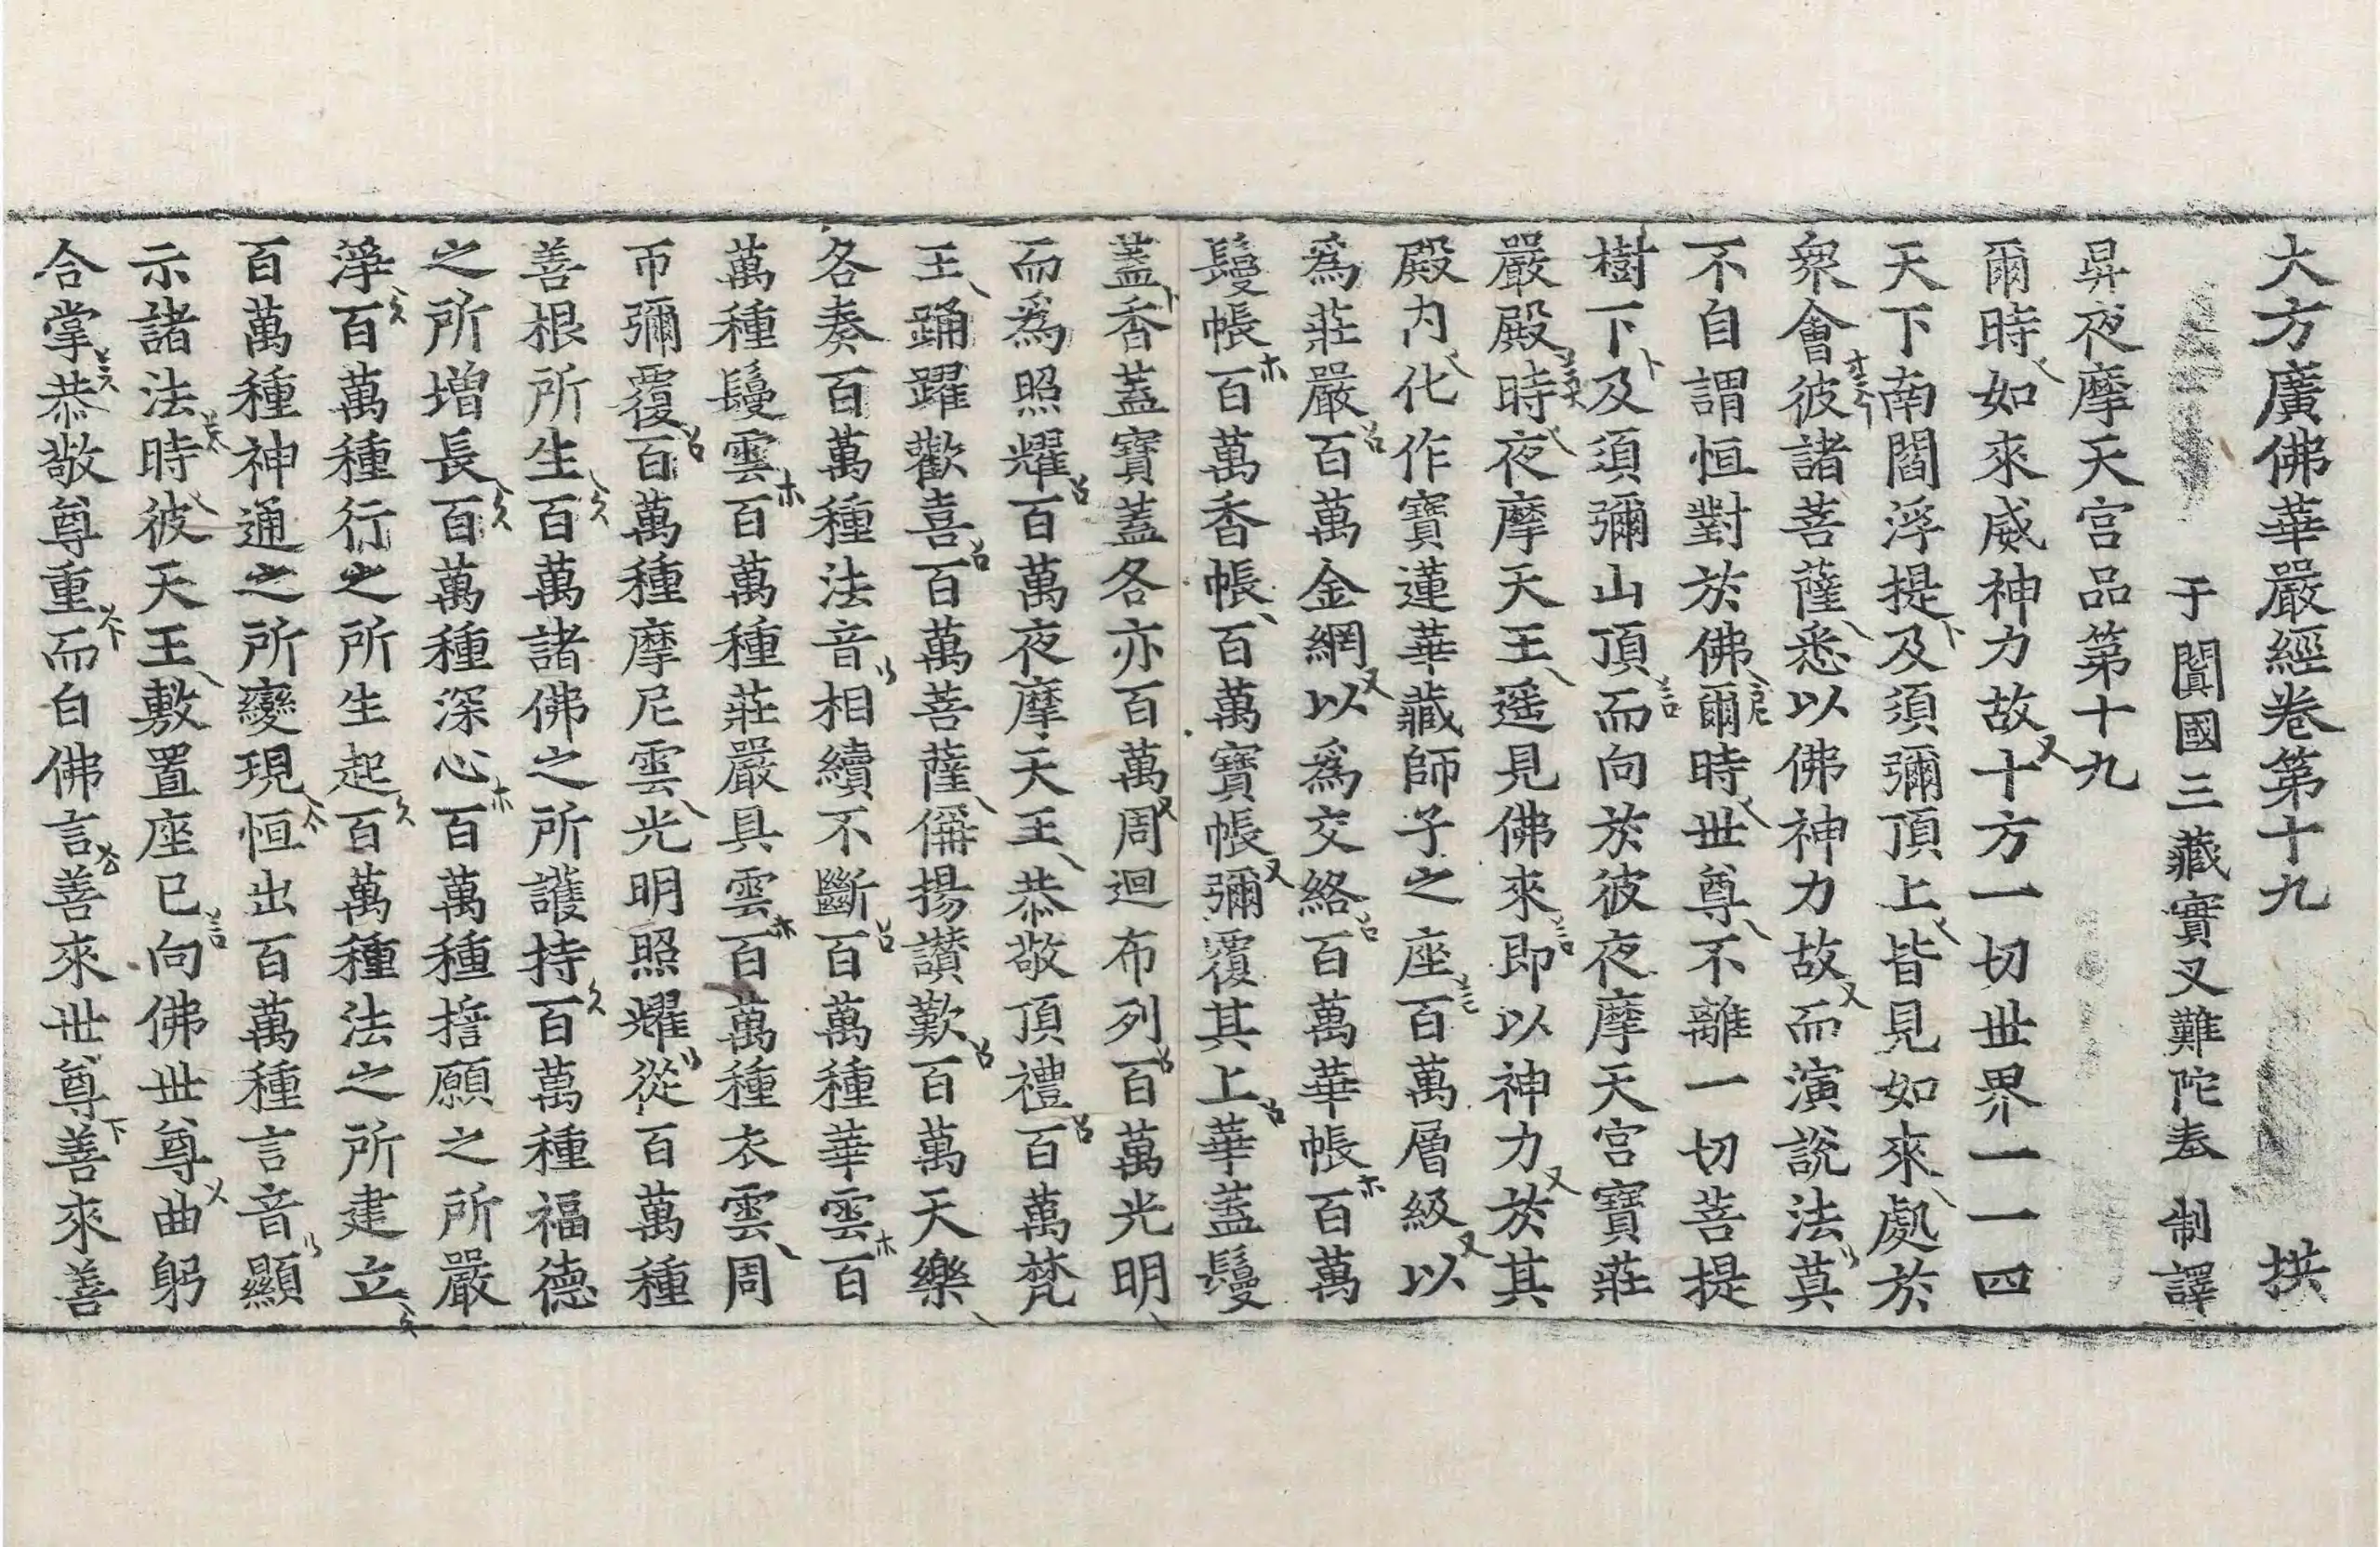 大方廣佛華嚴經卷第十九 拱
于闐國三藏實叉難陀奉 制譯
昇夜摩天宮品第十九
爾時如來威神力故十方一切世界一一四
天下南閻浮提及須彌頂上皆見如來處於
衆會彼諸菩薩悉以佛神力故而演說法莫
不自謂恒對於佛爾時世尊不離一切菩提
樹下及須彌山頂而向於彼夜摩天宮寶莊
嚴殿時夜摩天王遥見佛來即以神力於其
殿內化作寶蓮華藏師子之座百萬層級以
爲莊嚴百萬金網以爲交絡百萬華帳百萬
鬘帳百萬香帳百萬寶帳彌覆其上華蓋鬘
蓋香蓋寶蓋各亦百萬周迴布列百萬光明
而爲照耀百萬夜摩天王恭敬頂禮百萬梵
王踊躍歡喜百萬菩薩偁揚讚歎百萬天樂
各奏百萬種法音相續不斷百萬種華雲百
萬種鬘雲百萬種莊嚴具雲百萬種衣雲周
帀彌覆百萬種摩尼雲光明照耀從百萬種
善根所生百萬諸佛之所護持百萬種福德
之所增長百萬種深心百萬種誓願之所嚴
淨百萬種行之所生起百萬種法之所建立
百萬種神通之所變現恒出百萬種言音顯
示諸法時彼天王敷置座已向佛世尊曲躬
合掌恭敬尊重而白佛言善來世尊善來善